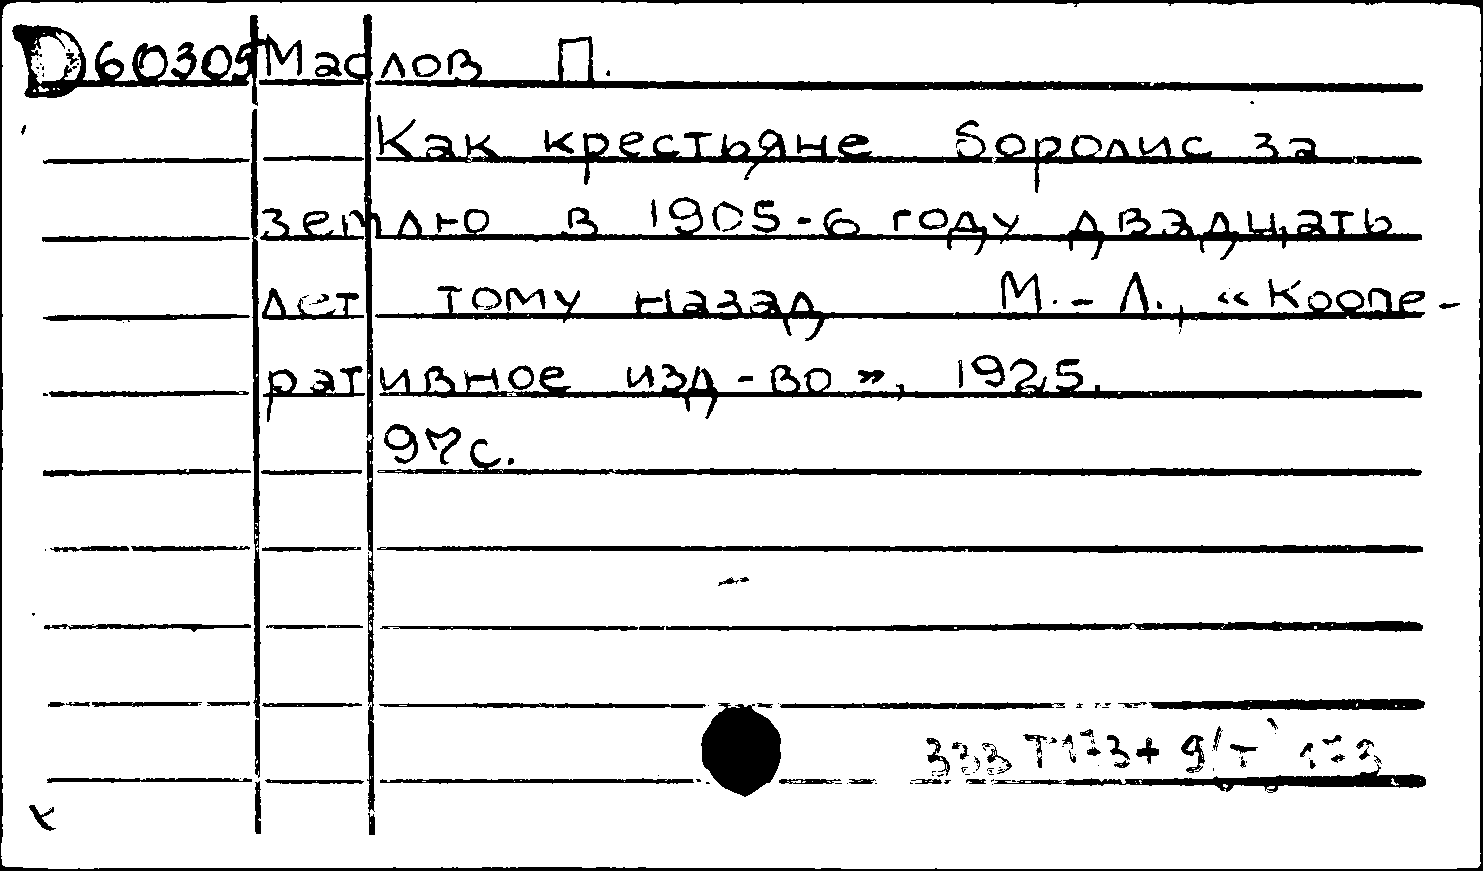 D60305 Маслов П.
Как крестьяне боролис за
землю в 1905-6 году двадцать
лет тому назад М.-Л., «Коопе-
ративное изд-во», 1925.
97с.
333 Т173+